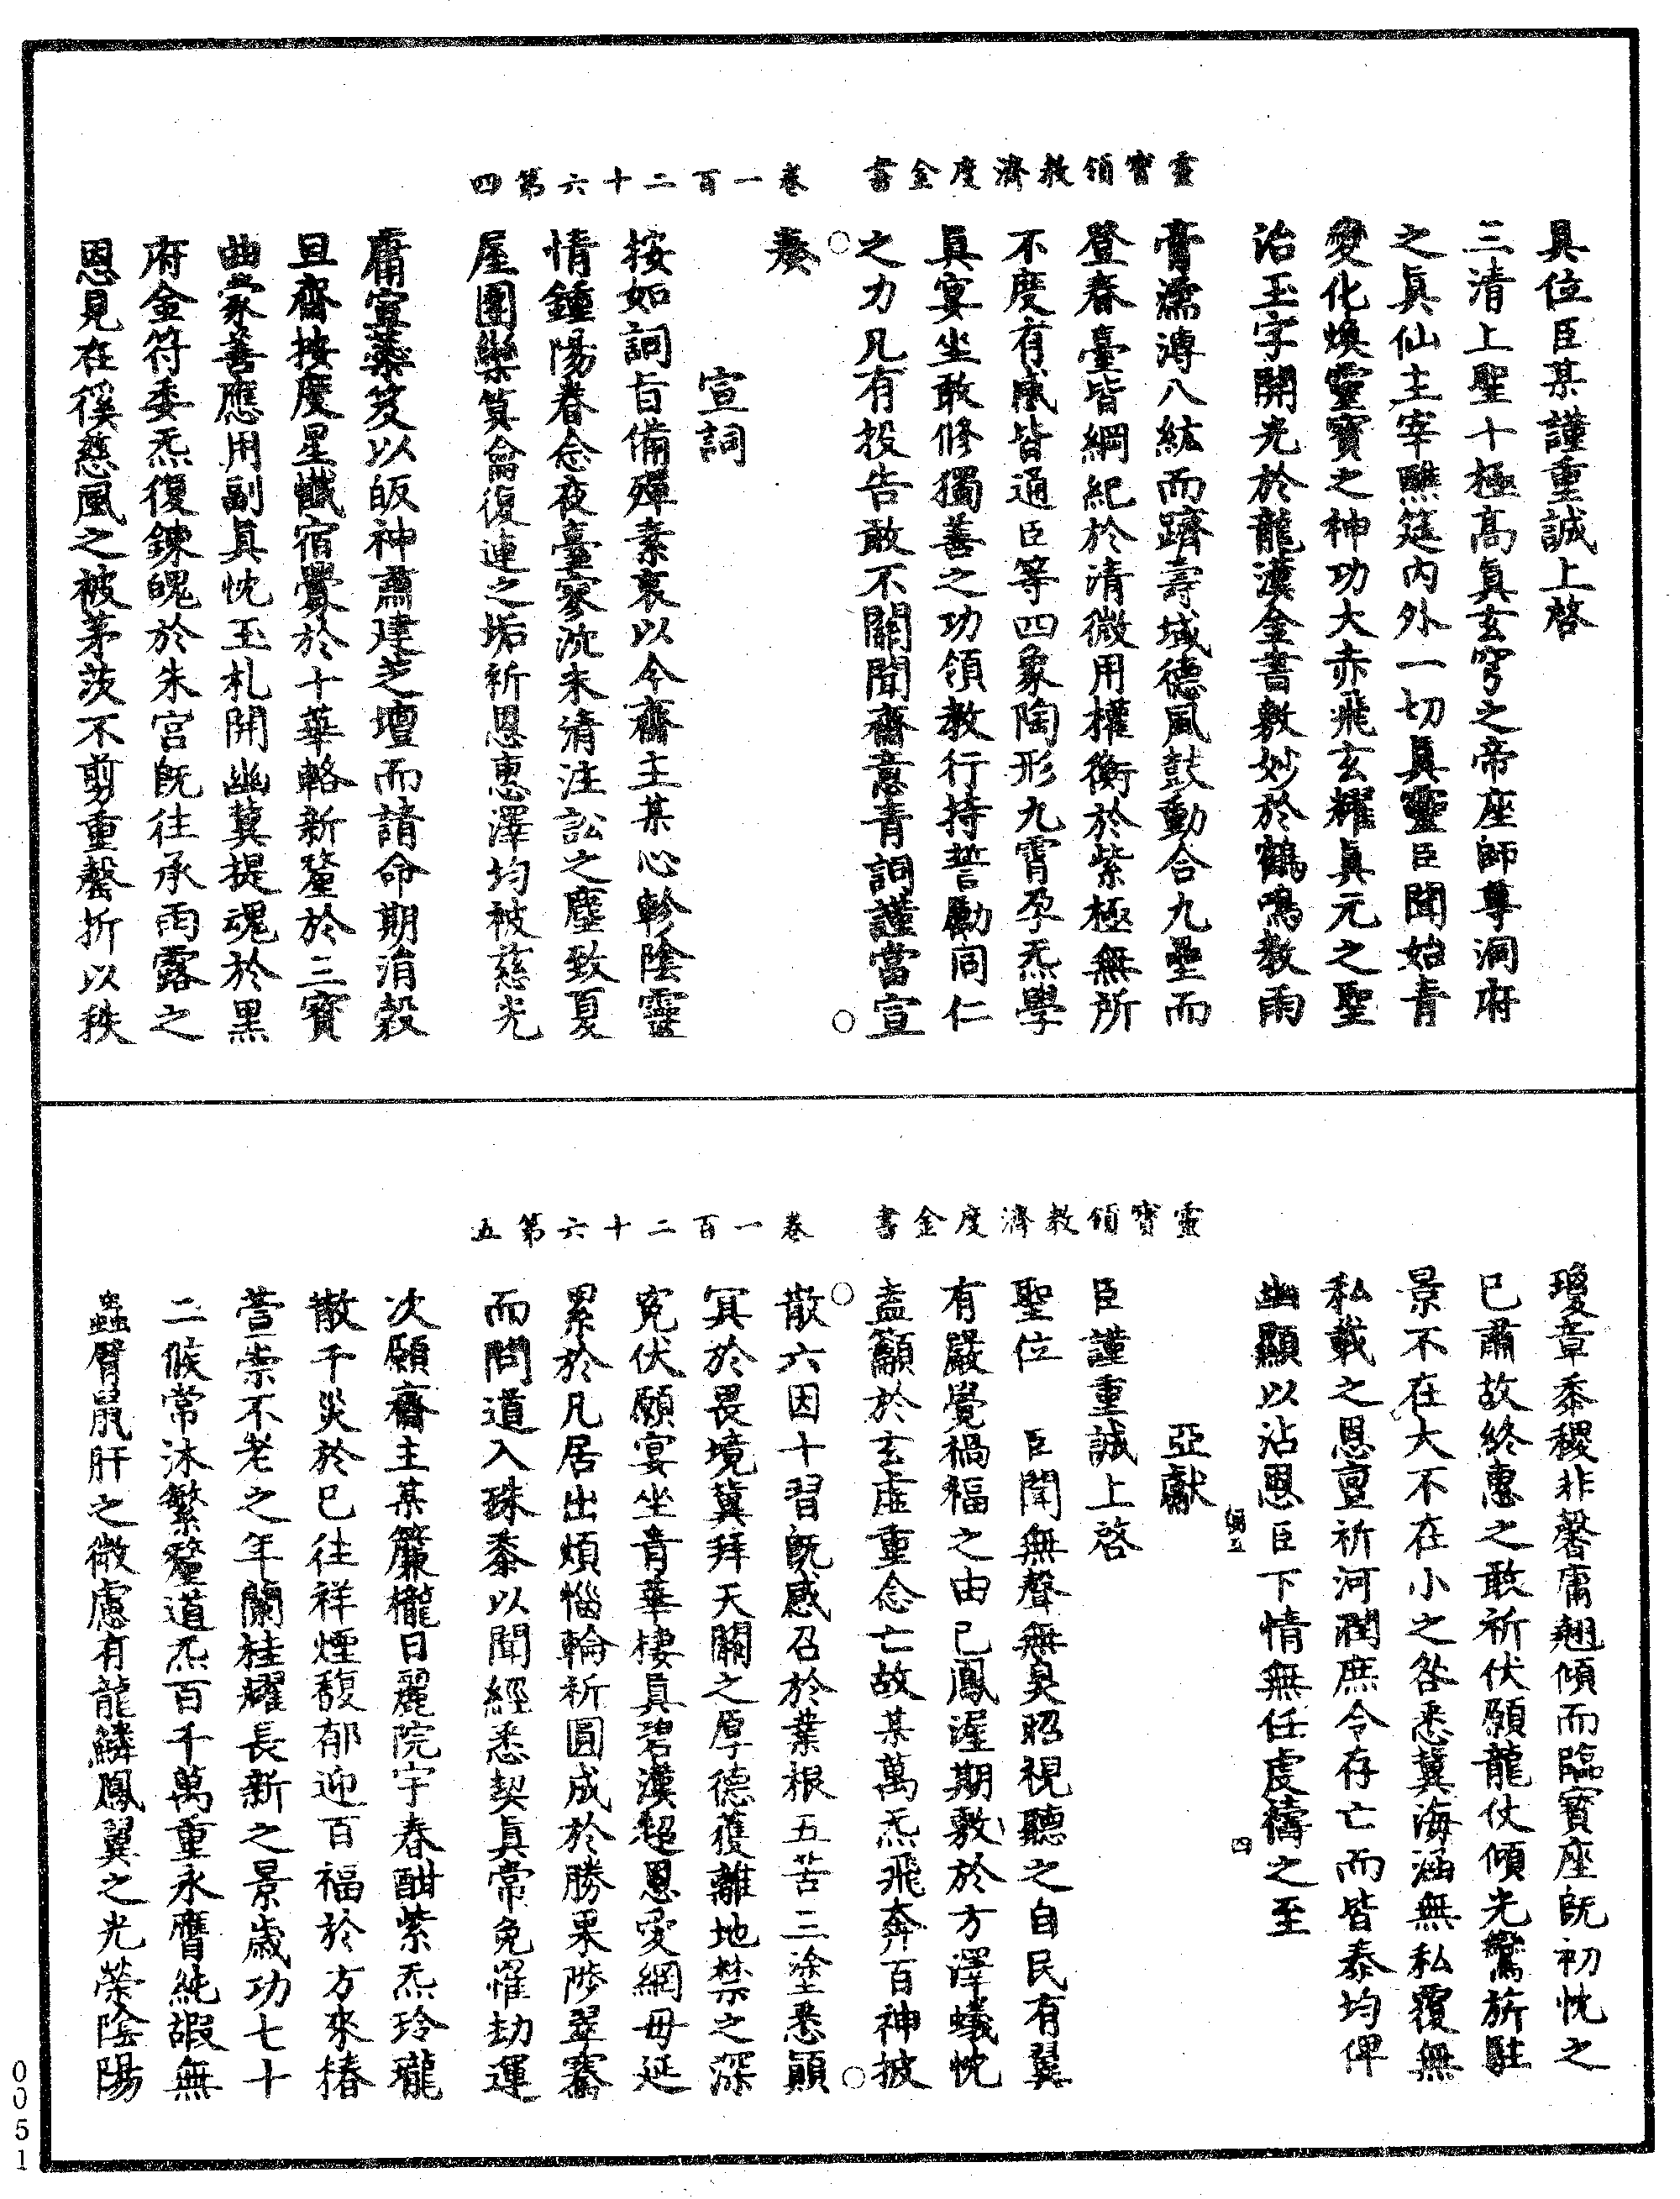 靈寶領教濟度金書　卷一百二十六第四
具位臣某謹重誠上啓
三清上聖十極高眞玄穹之帝座師尊洞府
之眞仙主宰醮筵內外一切眞靈臣聞始青
變化煥靈寶之神功大赤飛玄耀眞元之聖
治玉字開光於龍漢金書敷妙於鶴鳴教雨
膏濡溥八紘而躋壽域德風鼓動合九壘而
登春臺皆綱紀於清微用權衡於紫極無所
不度有感皆通臣等四象陶形九霄孕炁學
眞宴坐敢修獨善之功領教行持誓勵同仁
之力凡有投告敢不關聞齋意青詞謹當宣
奏
宣詞
按如詞旨備殫素衷以今齋主某心軫陰靈
情鍾陽眷念夜臺寥沈未清注訟之塵致夏
屋團欒算侖復連之垢祈恩惠澤均被慈光
庸宣蘂笈以皈神肅建芝壇而請命期消穀
旦齋按度星懺宿釁於十華輅新釐於三寶
曲蒙善應用副眞忱玉札開幽冀提魂於黑
府金符委炁復鍊魄於朱宮旣往承雨露之
恩見在徯慈風之被茅茨不剪重罄折以秩
靈寶領教濟度金書　卷一百二十六第五
瓊章黍稷非馨庸翹傾而臨寶座旣初忱之
已肅故終惠之敢祈伏願龍仗傾光鸞旂駐
景不在大不在小之咎悉冀海涵無私覆無
私載之恩亶祈河潤庶令存亡而皆泰均俾
幽顯以沾恩臣下情無任虔禱之至
四
亞獻
臣謹重誠上啓
聖位　臣聞無聲無臭昭視聽之自民有翼
有嚴覺禍福之由己鳳渥期敷於方澤蟻忱
盍籲於玄虛重念亡故某萬炁飛奔百神披
散六因十習旣感召於業根五苦三塗悉顚
冥於畏境冀拜天關之厚德獲離地禁之深
寃伏願宴坐青華棲眞碧漢超恩愛網毋延
累於凡居出煩惱輪祈圓成於勝果陟翠騫
而問道入珠黍以聞經悉契眞常免罹劫運
次願齋主某簾櫳日麗院宇春酣紫炁玲瓏
散千災於已往祥煙馥郁迎百福於方來椿
萱崇不老之年蘭桂耀長新之景歲功七十
二候常沐繁釐道炁百千萬重永膺純嘏無
蟲臂鼠肝之微慮有龍鱗鳳翼之光榮陰陽
0051